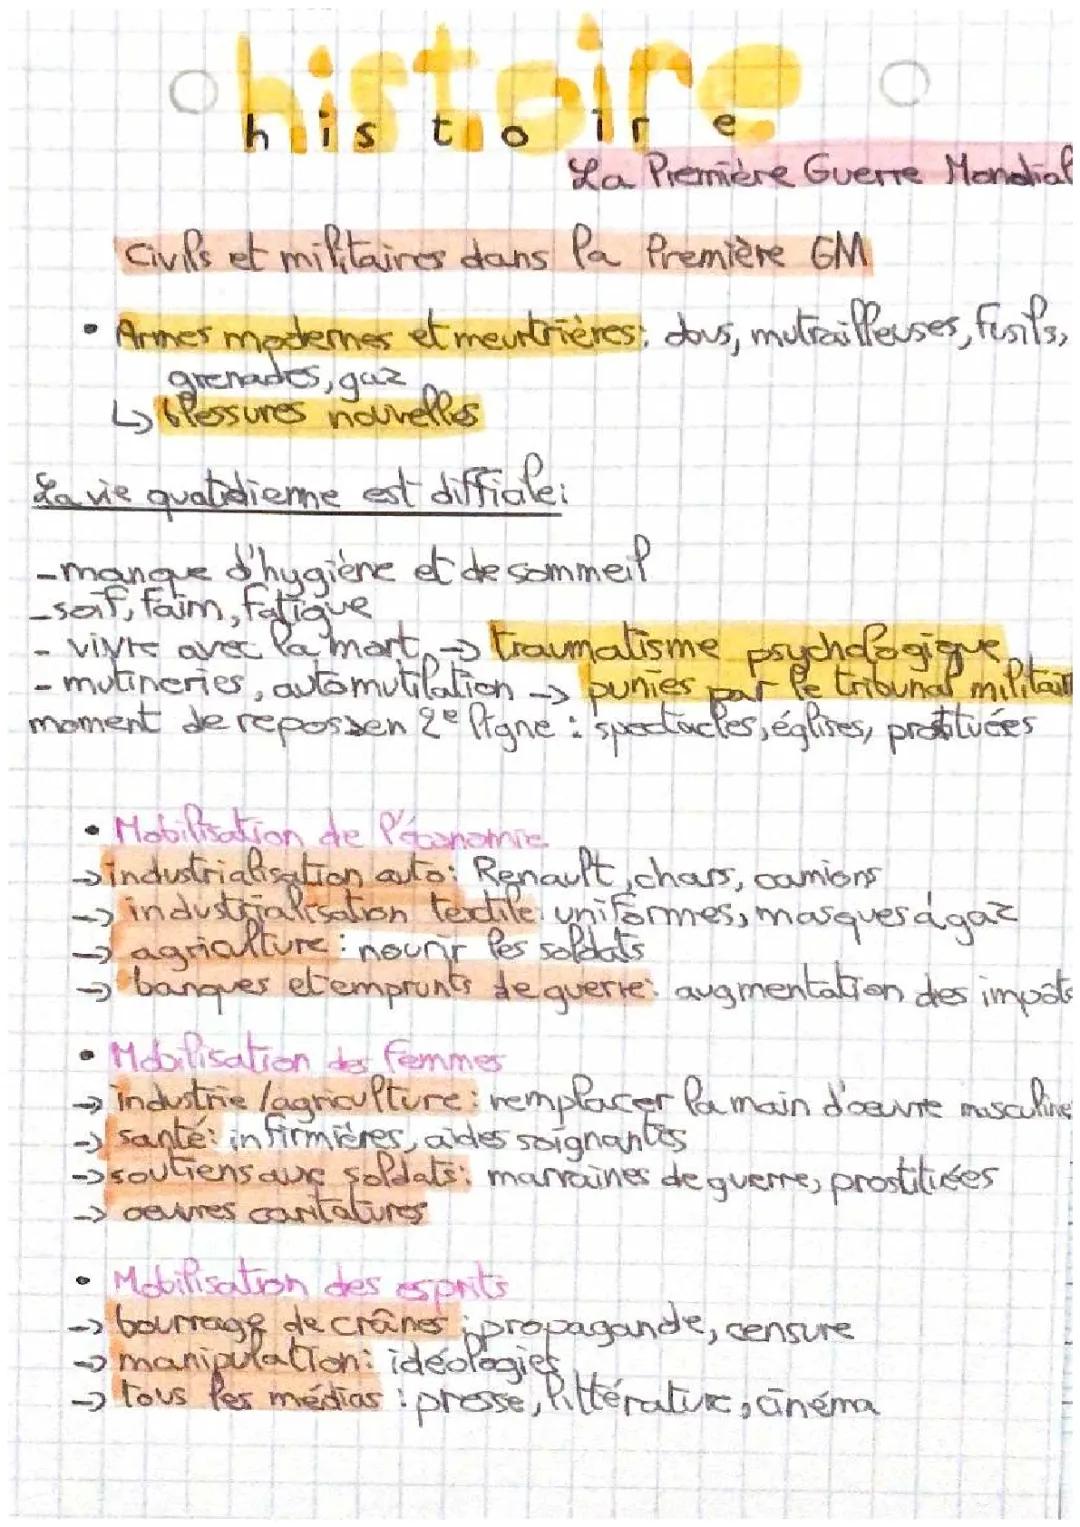 histoire
histoire
La Première Guerre Mondial
Civils et militaires dans la Première GM
• Armes modernes et meurtrières: obus, mutrailleuses, fusils,
grenades, gaz
↳ blessures nouvelles
La vie quotidienne est difficile:
- manque d'hygiène et de sommeil
- soif, faim, fatigue
- vivre avec la mort → traumatisme psychologique
- mutineries, automutilation → punies par le tribunal militair
moment de repos en 2e ligne : spectacles, églises, prostituées
• Mobilisation de l'économie
→ industrialisation auto: Renault, chars, camions
→ industrialisation textile: uniformes, masques à gaz
→ agriculture: nourir les soldats
→ banques et emprunts de guerre: augmentation des impôts
• Mobilisation des femmes
→ industrie/agriculture: remplacer la main d'œuvre masculine
→ santé: infirmières, aides soignantes
→ soutiens aux soldats: marraines de guerre, prostitiées
→ oeuvres caritatives
• Mobilisation des esprits
→ bourrage de crânes: propagande, censure
→ manipulation: idéologies
→ tous les médias : presse, littérature, cinéma